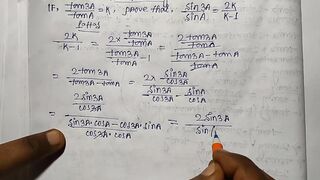 If, tan3A/tanA = K, prove that, sin3A/sinA = 2K/K-1
2K/K-1 = (2 tan3A/tanA)/(tan3A/tanA - 1) = (2tan3A/tanA)/((tan3A-tanA)/tanA)
= 2tan3A/(tan3A-tanA) = (2 × sin3A/cos3A)/(sin3A/cos3A - sinA/cosA)
= (2sin3A/cos3A)/((sin3A·cosA-cos3A·sinA)/(cos3A·cosA)) = 2sin3A/sin